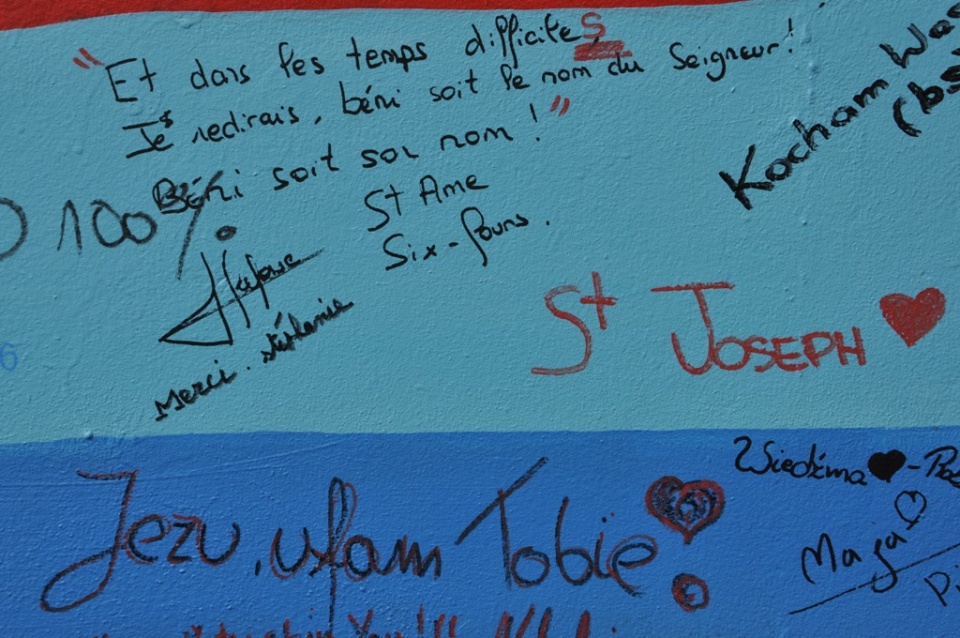 "Et dans les temps difficiles
Je redirais, béni soit le nom du Seigneur!
Béni soit son nom!"
100%
St Ame
Six-fours.
Merci. stéphanie
St JOSEPH
Kocham Was
(bs
6
Jezu, ufam Tobie!
Wiedźma
Maja